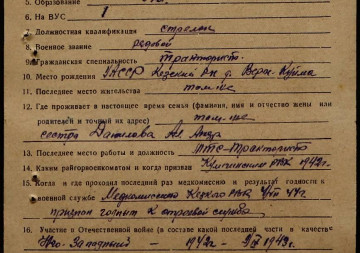 5. Образование
6. На ВУС 1
7. Должностная квалификация стрелок
8. Военное звание рядовой
9. Гражданская специальность тракторист
10. Место рождения УАССР Кезский Рн д. Верх-
11. Последнее место жительства там-же
12. Где проживает в настоящее время семья (фамилия, имя и отчество жены или
родителей и точный их адрес) там-же
сестра Данилова
13. Последнее место работы и должность МТС-тракторист
14. Каким райгорвоенкоматом и когда призван РВК 1942г.
15. Когда и где проходил последний раз медкомиссию и результат годности к
военной службе Медкомиссию РВК
признан годным к строевой службе
16. Участие в Отечественной войне (в составе какой последней части и в качестве
Юго-Западный — 1942г — 1943г.